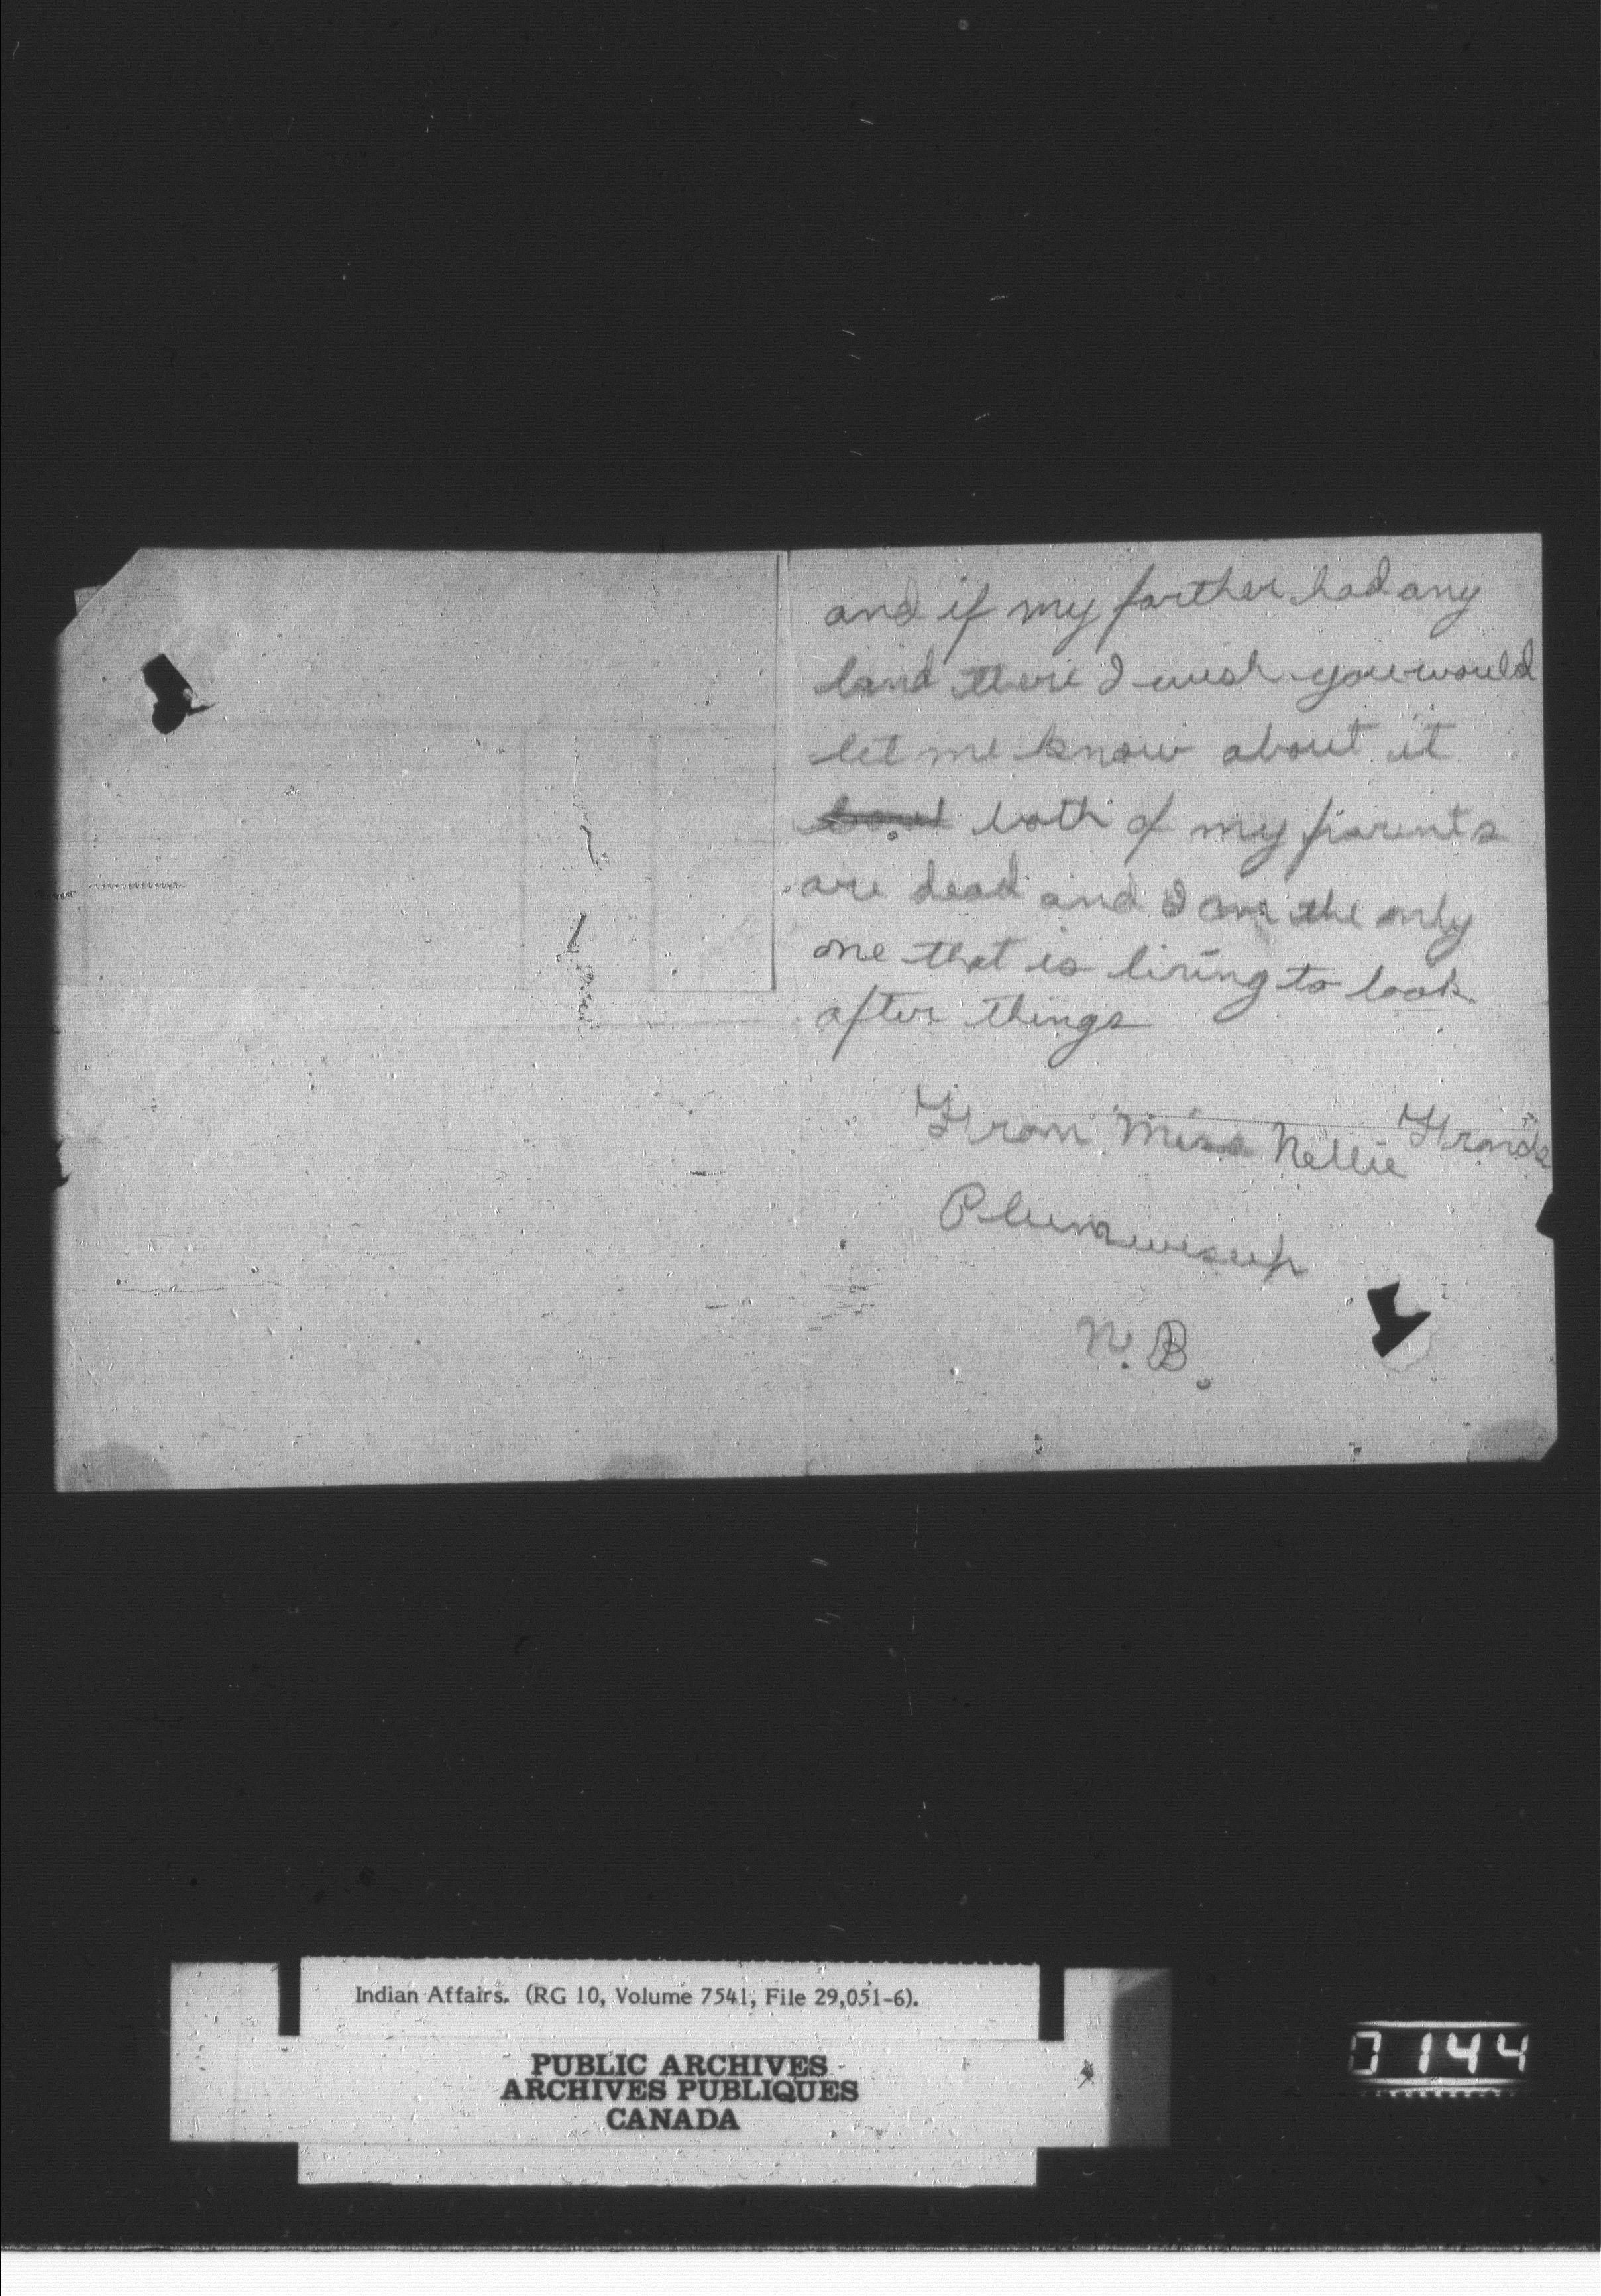 and if my farther had any
land there I wish you would
let me know about it
both of my parents
are dead and I am the only
one that is living to look
after things
From Miss Nellie Francis
Plumweseep
N.B.
Indian Affairs. (RG 10, Volume 7541, File 29,051-6).
PUBLIC ARCHIVES
ARCHIVES PUBLIQUES
CANADA
0144